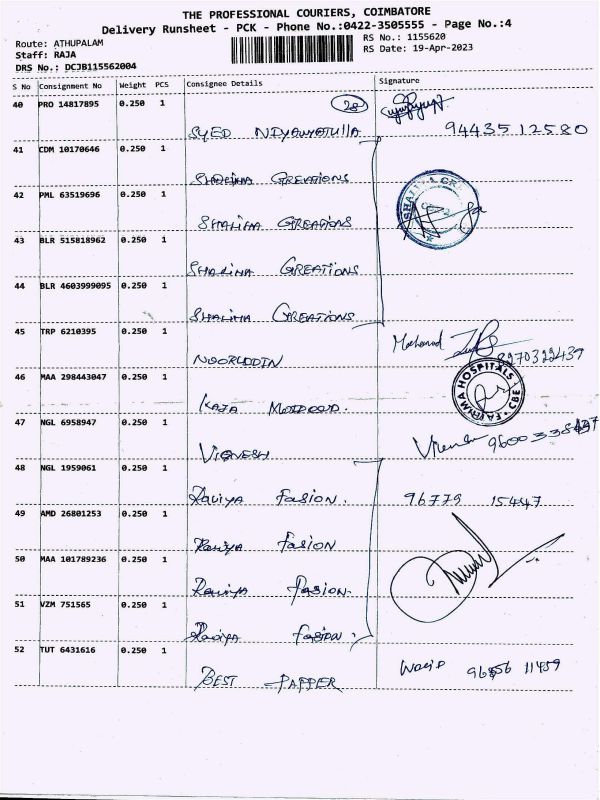 THE PROFESSIONAL COURIERS, COIMBATORE
Delivery Runsheet - PCK - Phone No.:0422-3505555 - Page No.:4
Route: ATHUPALAM
RS No.: 1155620
Staff: RAJA
RS Date: 19-Apr-2023
DRS No.: DCJB115562004
S No Consignment No Weight PCS Consignee Details Signature
40 PRO 14817895 0.250 1 28
SYED 9443512580
41 CDM 10170646 0.250 1
SHALIHA CREATIONS
42 PML 63519696 0.250 1
SHALIHA CREATIONS
43 BLR 515818962 0.250 1
SHALIHA CREATIONS
44 BLR 4603999095 0.250 1
SHALIHA CREATIONS
45 TRP 6210395 0.250 1
NOORUDDIN 8270322439
46 MAA 298443047 0.250 1 FATHIMA HOSPITALS CBE
KAJA
47 NGL 6958947 0.250 1
VIGNESH
48 NGL 1959061 0.250 1
Raviya Fasion. 96779 15447
49 AMD 26801253 0.250 1
Raviya Fasion
50 MAA 101789236 0.250 1
Raviya Fasion.
51 VZM 751565 0.250 1
Raviya Fasion.
52 TUT 6431616 0.250 1
BEST PAPPER